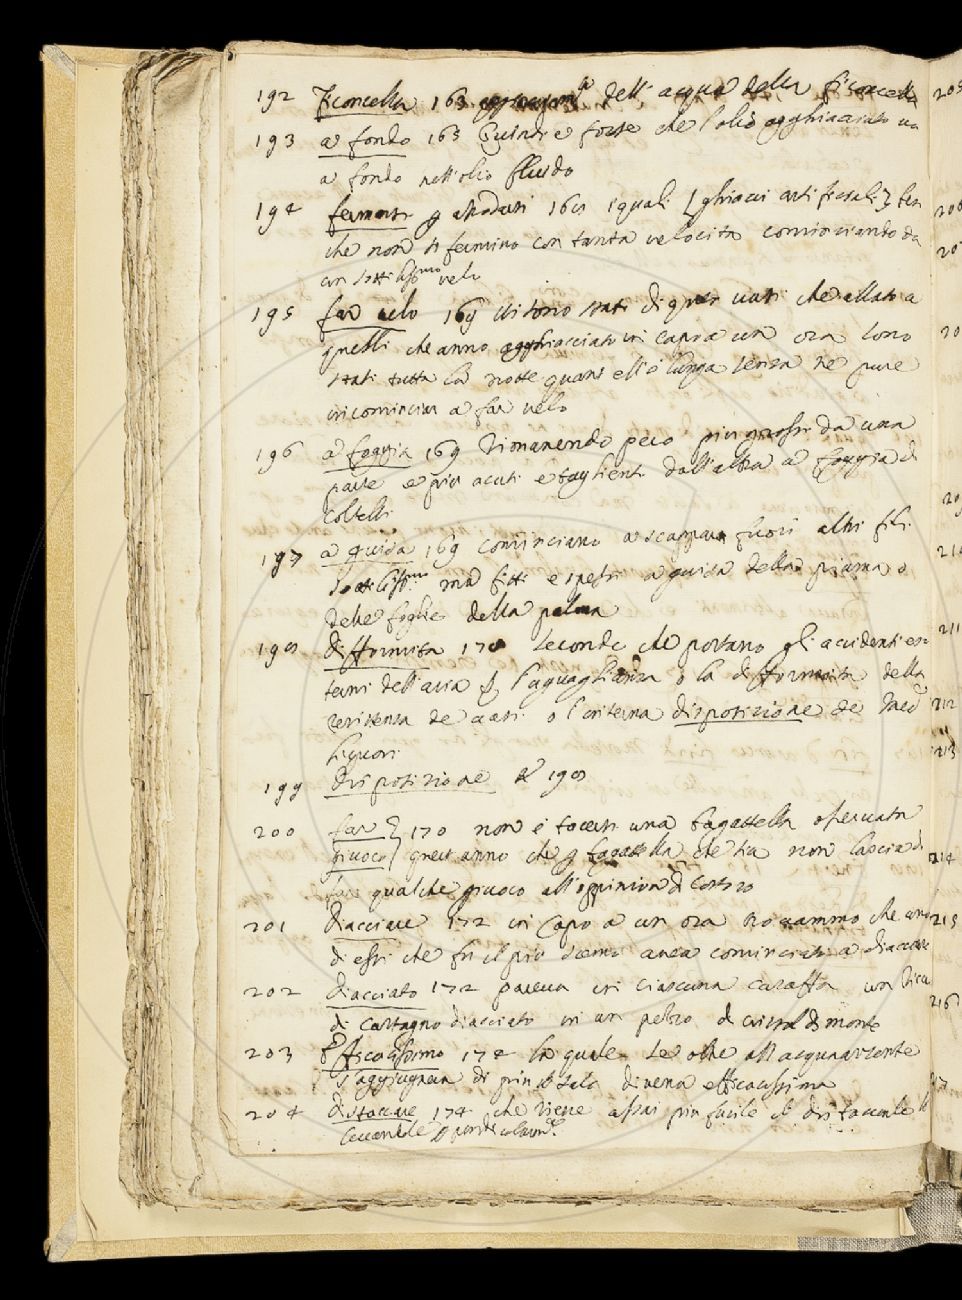 192 Ficoncella 163 dell'acqua della ficoncella
193 a fondo 165 Quindi è forse che l'olio agghiacciato va
a fondo nell'olio fluido
194 fermarsi 168 i quali [ghiacci artificiali]
che non si fermino con tanta velocità cominciando da
un sottilissmo velo
195 far velo 169 Vi sono stati di quei vasi che allato a
quelli che anno agghiacciato in capo a un ora sono
stati tutta la notte quant'ell'è lunga senza ne pure
incominciar a far velo
196 a foggia 169 rimanendo però più grossi da una
parte e più acuti e taglienti dall'altra a foggia di
coltelli
197 a guisa 169 cominciano a scappar fuori altri fili
sottilissmi ma fitti e spessi a guisa della piuma o
delle foglie della palma
198 difformità 170 secondo che portano gli accidenti es
terni dell'aria l'uguaglianza o la difformità della
resistenza de vasi o l'interna disposizione de med
liquori
199 disposizione V 198
200 far 170 non è ella una bagattella osservata
giuoco quest'anno che bagattella che sia non lascia di
far qualche giuoco all'oppinion di
201 diacciare 172 in capo a un ora trovammo che uno
di essi che fu il più scemo avea cominciato a diacciare
202 diacciato 172 pareva in ciascuna caraffa un
di diacciato in un pezzo di cristal di monte
203 Efficacissimo 174 la quale se oltre all'acquarzente
s'aggiugneva di prin diventa efficacissima
204 distaccare 174 che riesce assai più facile il distaccarle